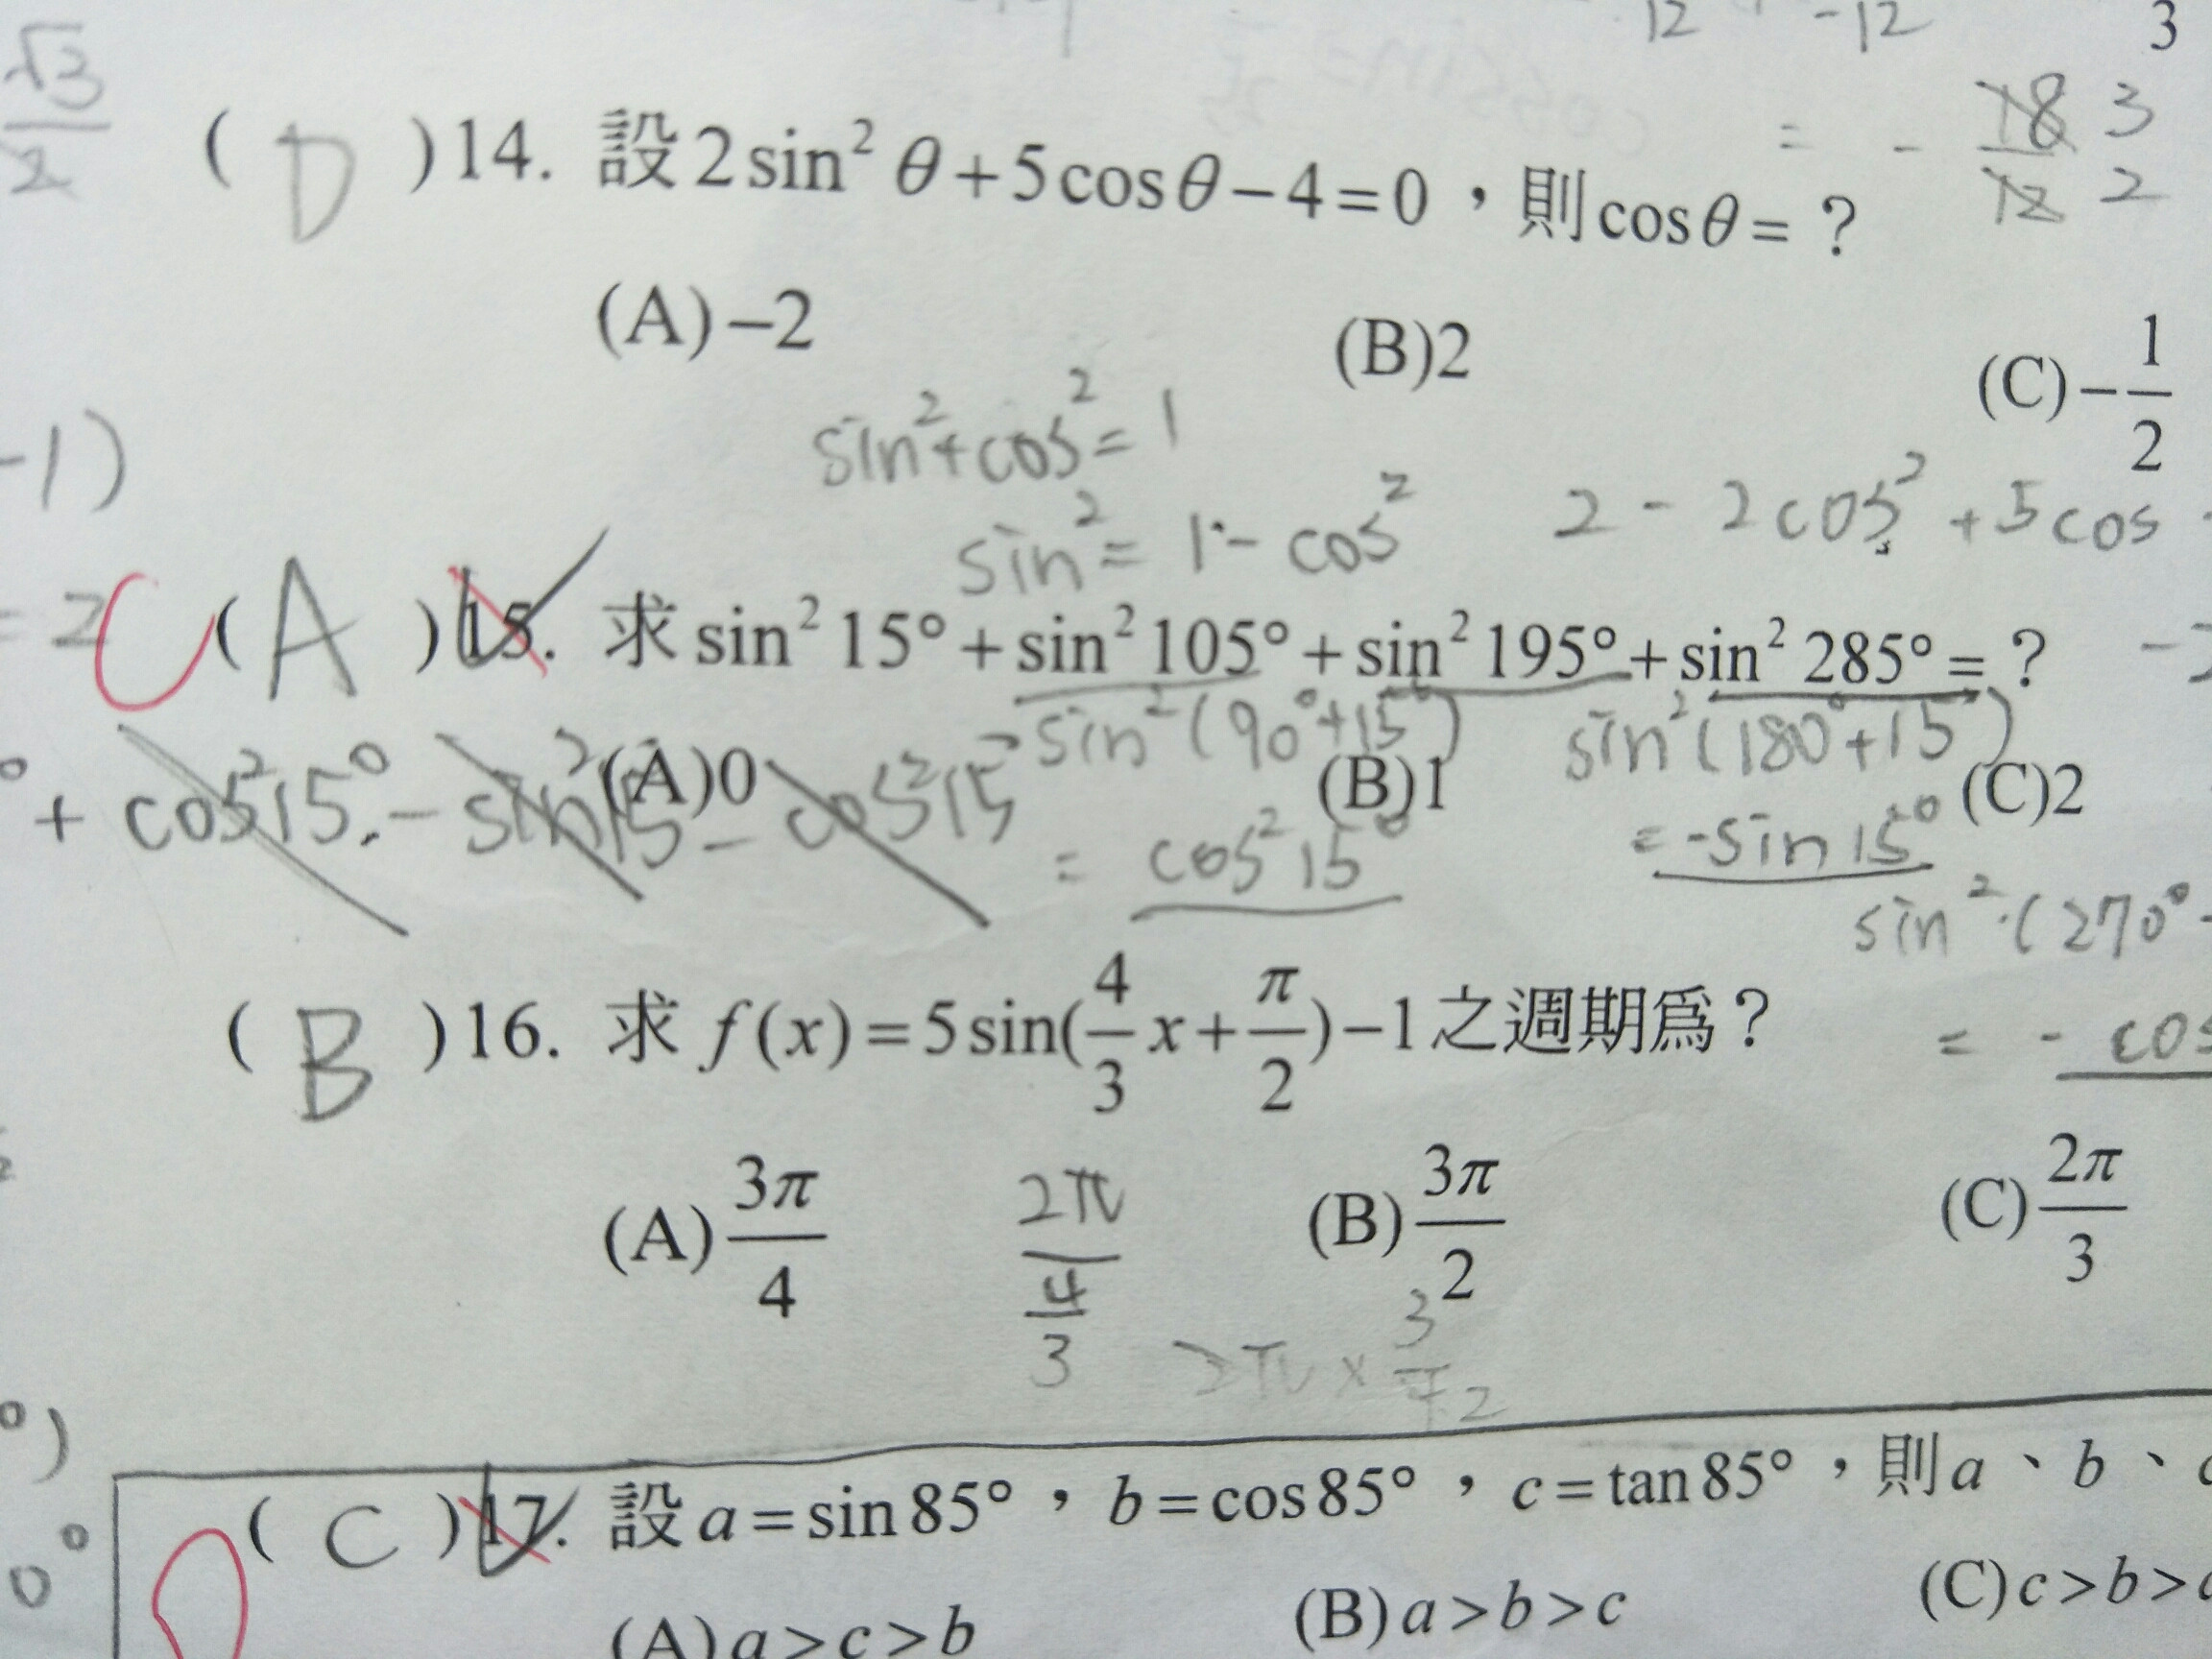 12 -12 3
√3/2
( D )14. 設2sin² θ+5cosθ−4=0，則cosθ=？
= - 18/12 3/2
(A)−2 (B)2 (C)−1/2
sin²+cos²=1
-1)
sin²= 1-cos² 2 - 2cos² +5cos
= 2 C ( A )15. 求sin² 15°+sin² 105°+sin² 195°+sin² 285°=？
sin²(90°+15°) sin²(180°+15)
(A)0 (B)1 (C)2
° + cos²15° - sin²15 - cos²15
= cos²15° = -sin15°
sin²(270°
( B )16. 求 f(x)=5sin(4/3 x+π/2)−1之週期為？
= - cos
(A)3π/4 (B)3π/2 (C)2π/3
2π/(4/3)
2π×3/4 2
°)
( C )17. 設a=sin85°，b=cos85°，c=tan85°，則a、b、
0°
(A)a>c>b (B)a>b>c (C)c>b>